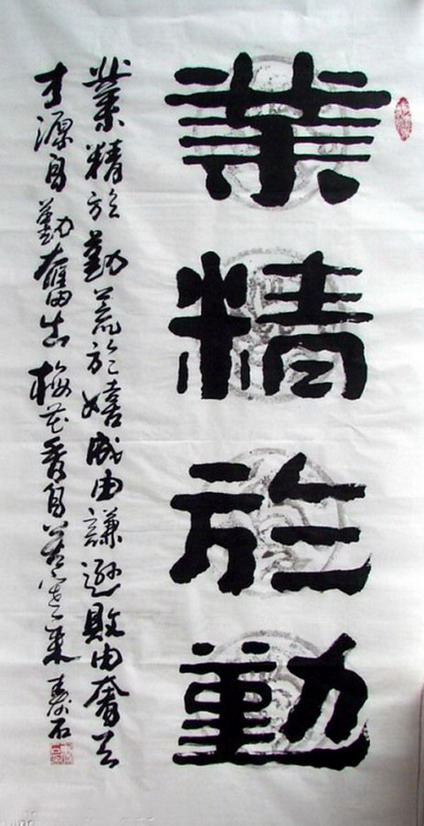 業精於勤
業精於勤荒於嬉成由謙遜敗由奢天
才源自勤奮出梅花香自苦寒來 壽石